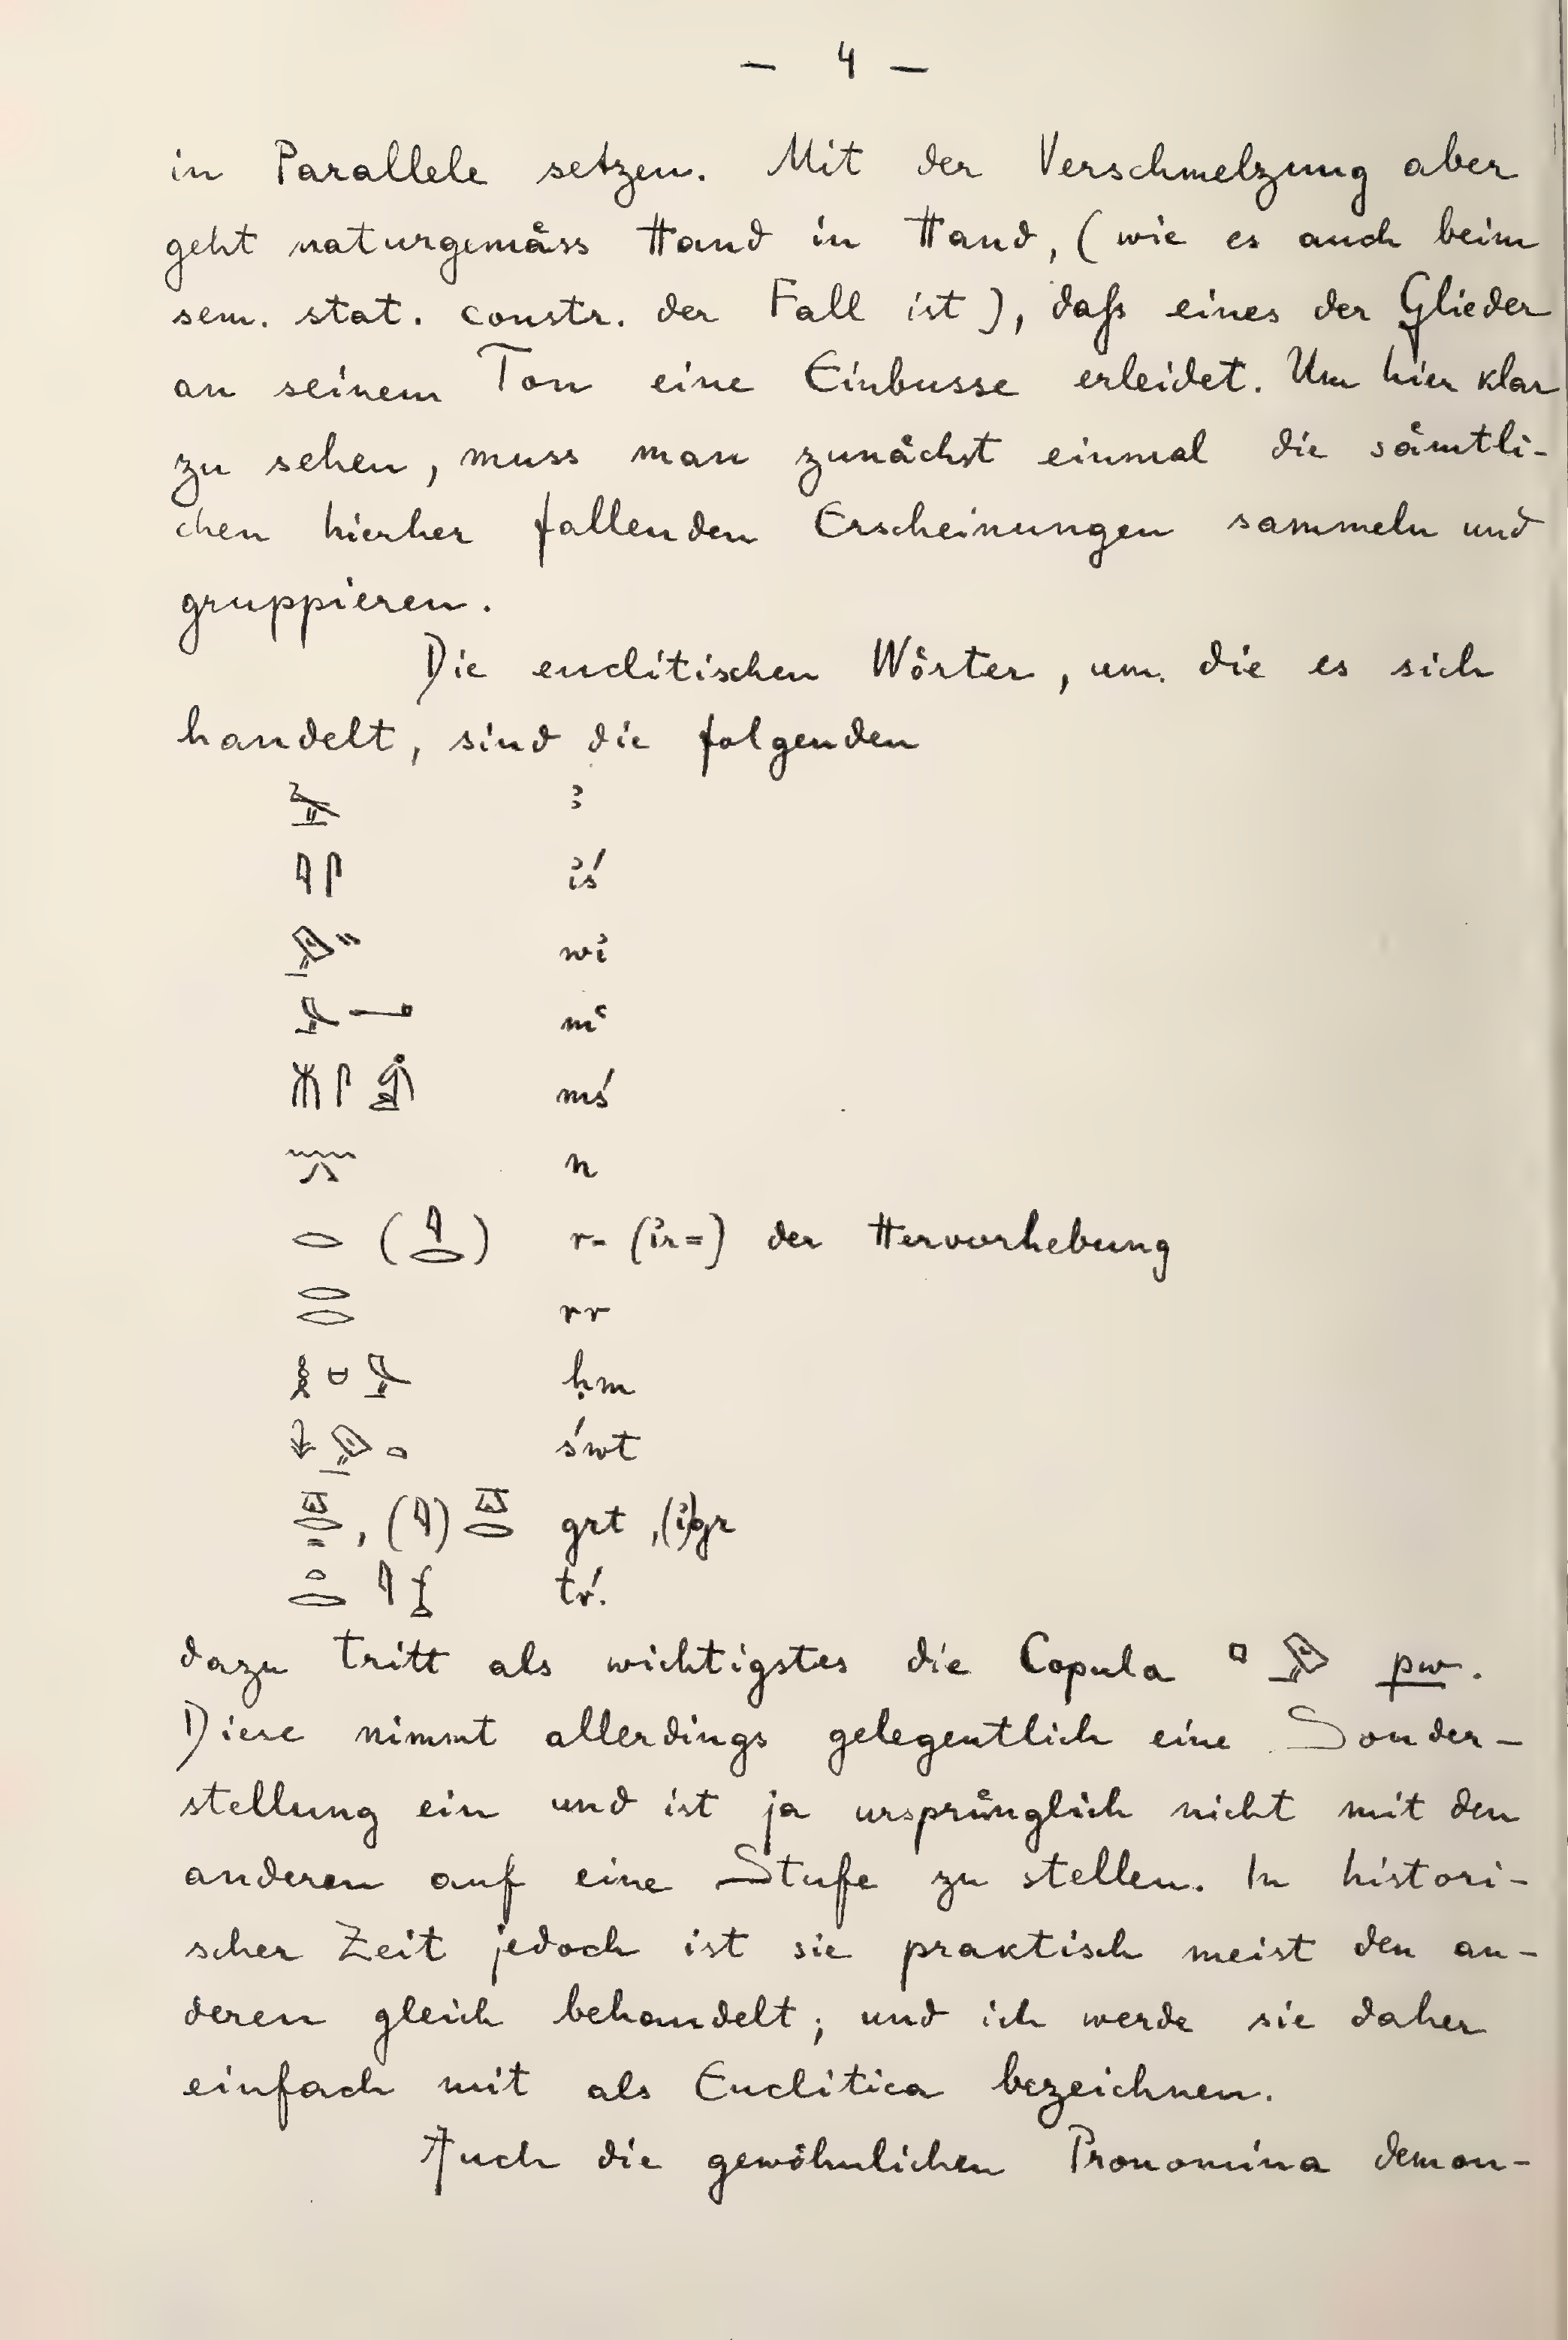 — 4 —
in Parallele setzen. Mit der Verschmelzung aber
geht naturgemäss Hand in Hand, (wie es auch beim
sem. stat. constr. der Fall ist), daſs eines der Glieder
an seinem Ton eine Einbusse erleidet. Um hier klar
zu sehen, muss man zunächst einmal die sämtli-
chen hierher fallenden Erscheinungen sammeln und
gruppieren.
Die enclitischen Wörter, um die es sich
handelt, sind die folgenden
𓄿 ꜣ
𓇋𓋴 ꞽś
𓅱𓏭 wꞽ
𓅓𓂝 mꜥ
𓄟𓋴𓀁 mś
𓈖𓂻 n
𓂋 (𓇋𓂋) r- (ꞽr=) der Hervorhebung
𓂋𓂋 rr
𓎛𓎟𓅓 ḥm
𓇓𓅱𓏏 śwt
𓎼𓂋𓏏, (𓇋)𓎼𓂋 grt, (ꞽ)gr
𓏏𓂋𓇋 tr.
dazu tritt als wichtigstes die Copula 𓊪𓅱 pw.
Diese nimmt allerdings gelegentlich eine Sonder-
stellung ein und ist ja ursprünglich nicht mit den
anderen auf eine Stufe zu stellen. In histori-
scher Zeit jedoch ist sie praktisch meist den an-
deren gleich behandelt; und ich werde sie daher
einfach mit als Enclitica bezeichnen.
Auch die gewöhnlichen Pronomina demon-